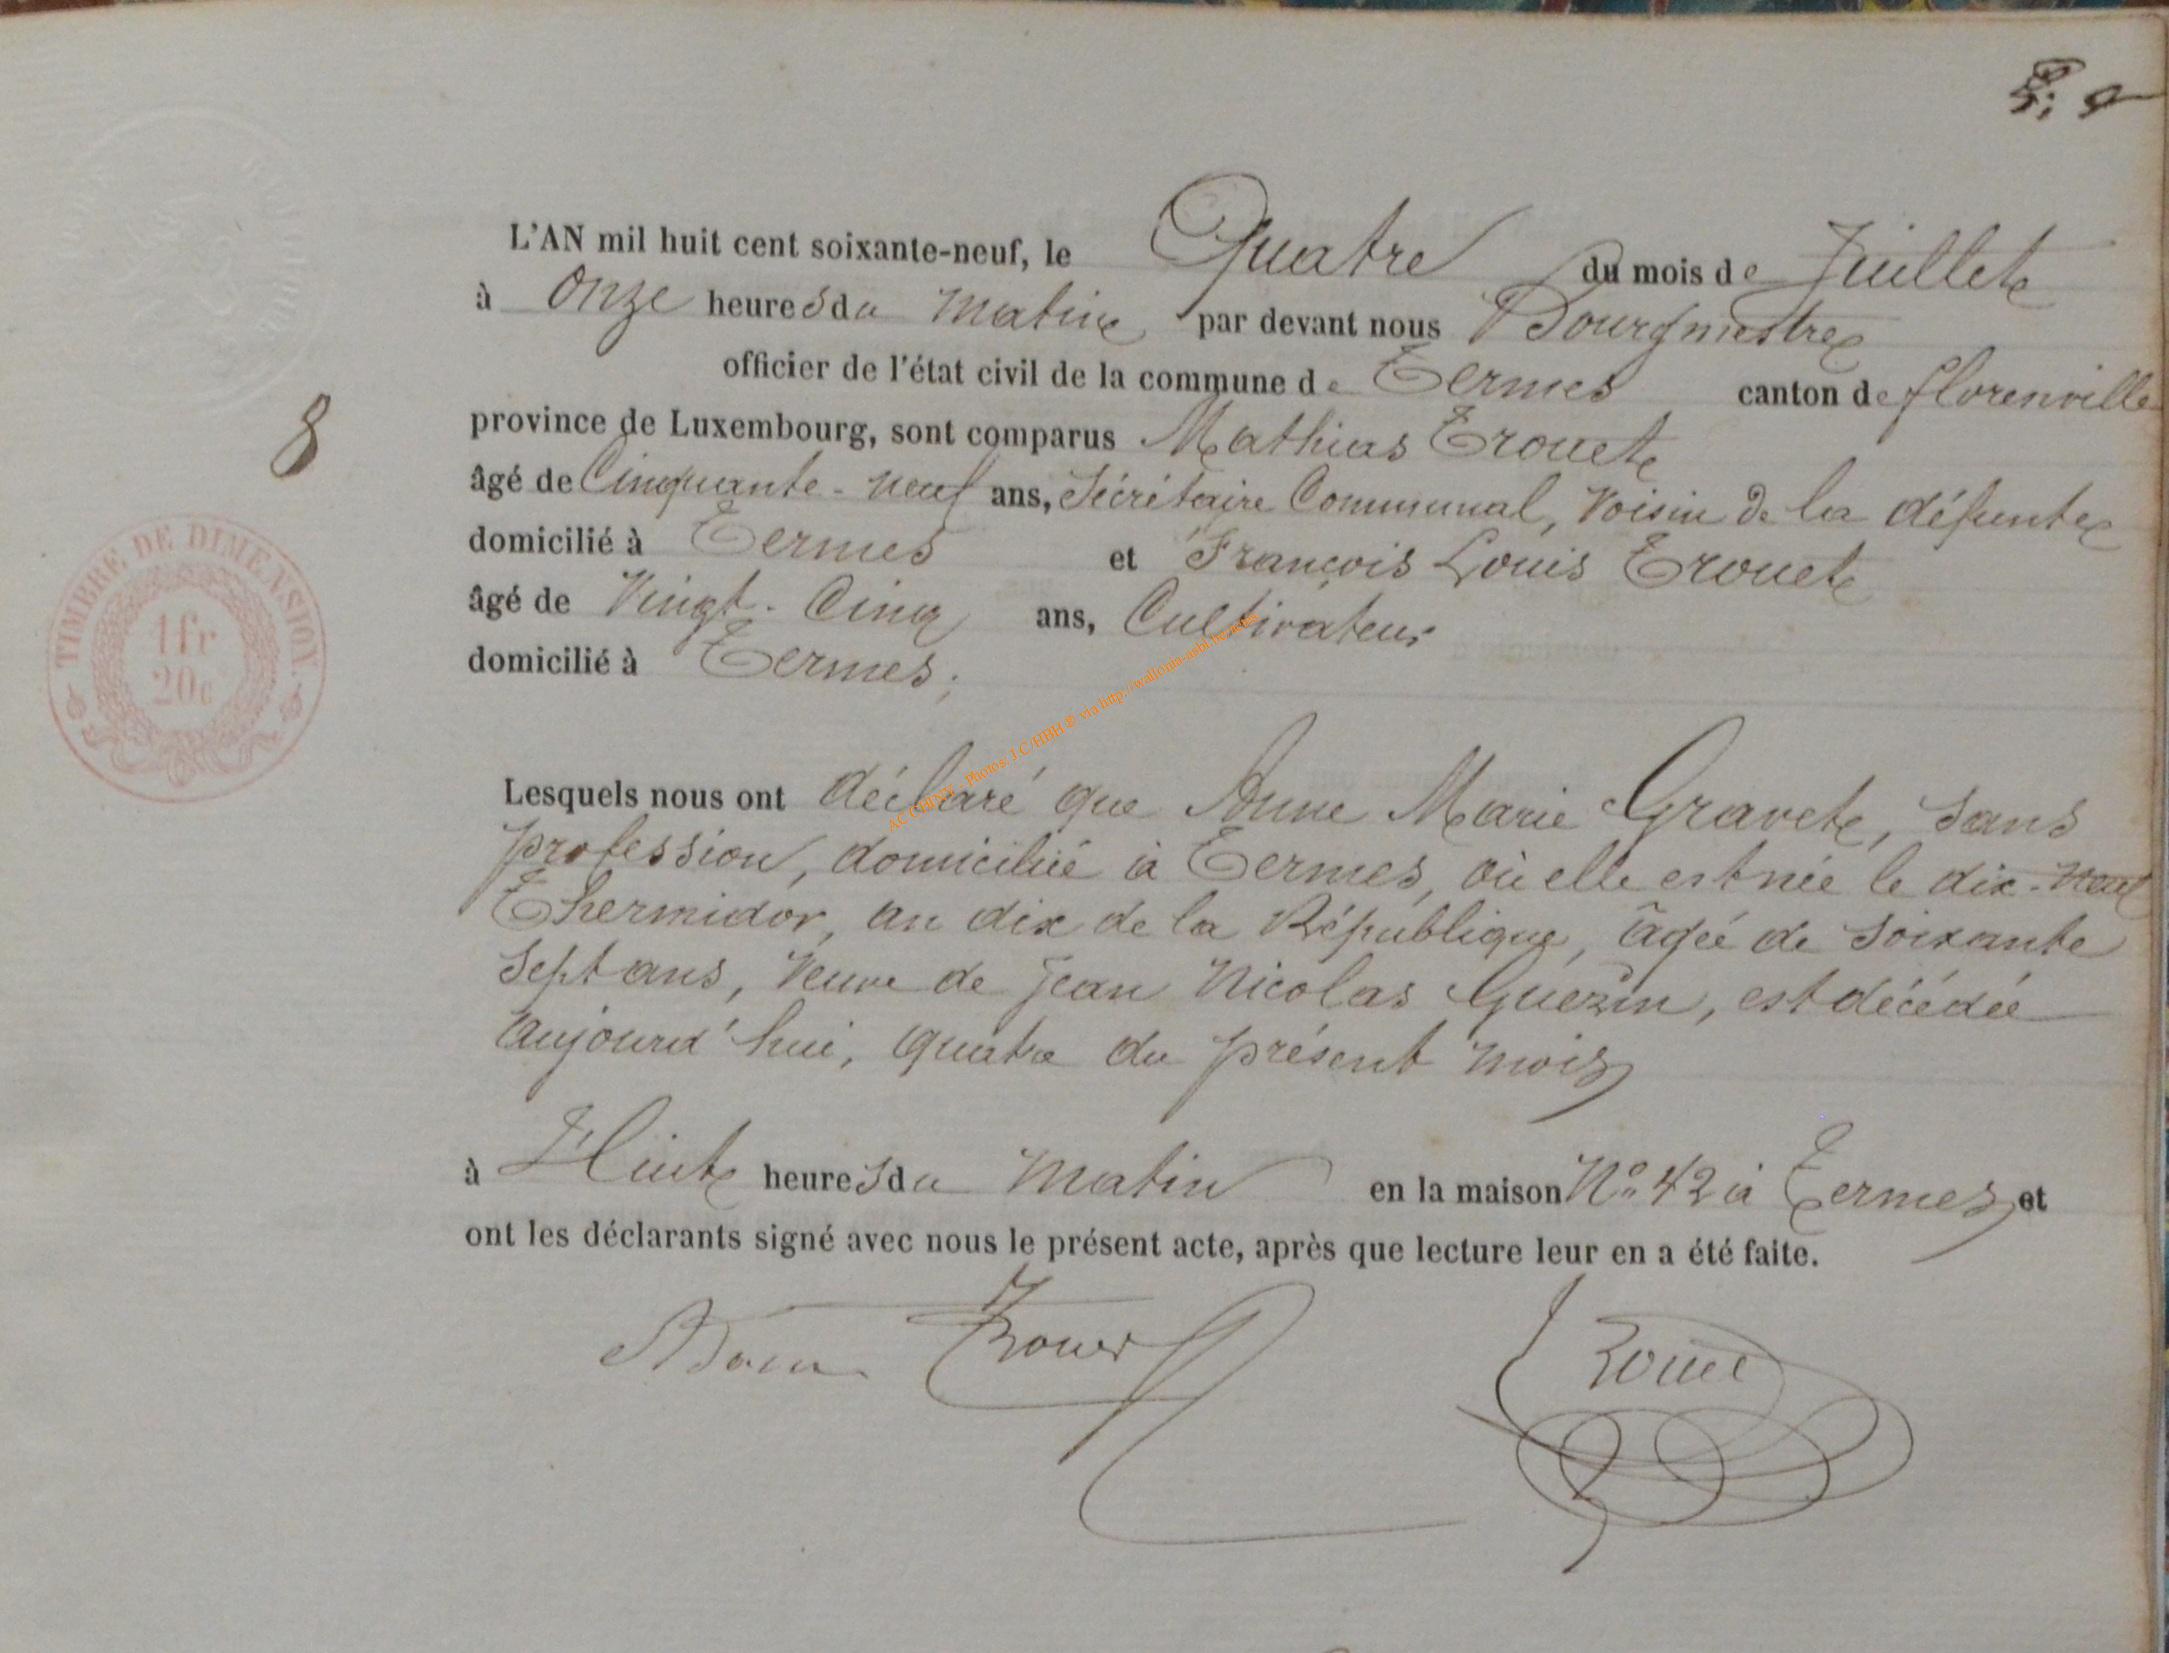 L'AN mil huit cent soixante-neuf, le Quatre du mois de Juillet
à Onze heures du Matin par devant nous Bourgmestre
officier de l'état civil de la commune de Termes canton de florenville
province de Luxembourg, sont comparus Mathias Trouet
âgé de Cinquante-neuf ans, Sécrétaire Communal, Voisin de la défunte
domicilié à Termes et François Louis Trouet
âgé de Vingt-Cinq ans, Cultivateur
domicilié à Termes;
Lesquels nous ont déclaré que Anne Marie Gravet, sans
profession, domiciliée à Termes, où elle est née le dix-neuf
Thermidor, an dix de la République, âgée de soixante
sept ans, Veuve de Jean Nicolas Guézin, est décédée
aujourd'hui, quatre du présent mois
à Huit heures du Matin en la maison No 42 à Termes et
ont les déclarants signé avec nous le présent acte, après que lecture leur en a été faite.
Trouet Trouet
8
TIMBRE DE DIMENSION.
1fr
20c
Photos: J.C/HBH © via http://wallonia-asbl.be.actes